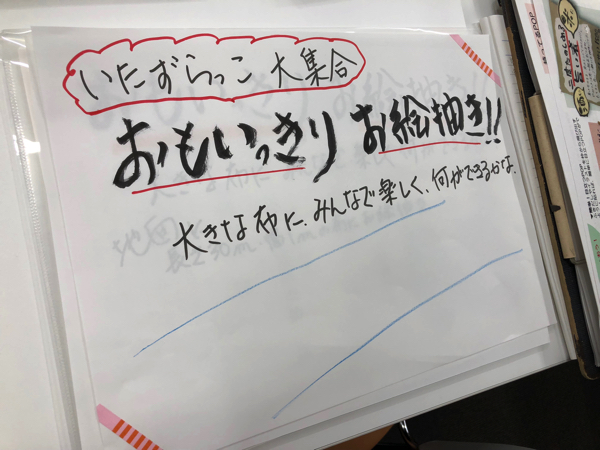 いたずらっこ 大集合
おもいっきり お絵抽き!!
大きな布に、みんなで楽しく、何ができるかな。